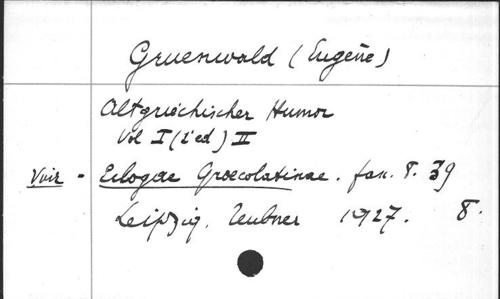 Gruenwald (Eugène)
Altgriechischer Humor
Vol I (2e ed) II
Voir - Eclogae Graecolatinae. fasc. 8. 39
Leipzig. Teubner 1927. 8.